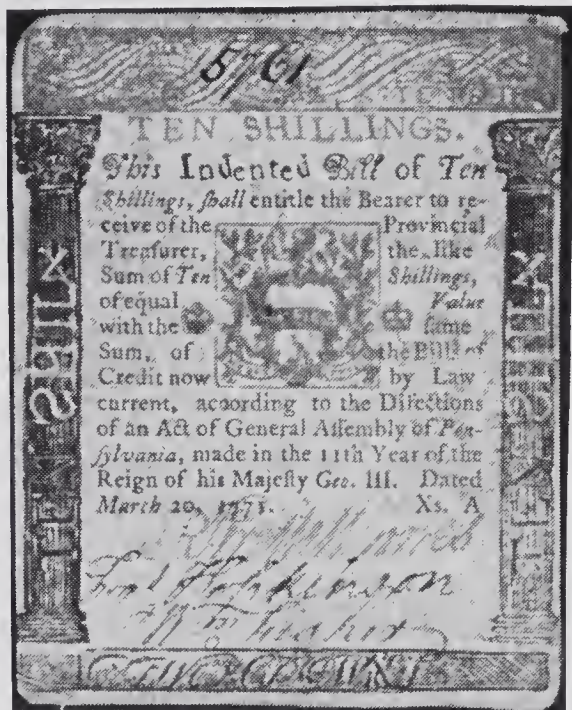 5761
TEN SHILLINGS.
This Indented Bill of Ten
Shillings, ſhall entitle the Bearer to re-
ceive of the Provincial
Treaſurer, the like
Sum of Ten Shillings,
of equal Value
with the ſame
Sum, of the Bills of
Credit now by Law
current, according to the Directions
of an Act of General Aſſembly of Pen-
ſylvania, made in the 11th Year of the
Reign of his Majeſty Geo. III. Dated
March 20, 1771. Xs. A
Hopkinson
Fisher
TEN SHILLs
TEN SHILLx
TWO CROWNS